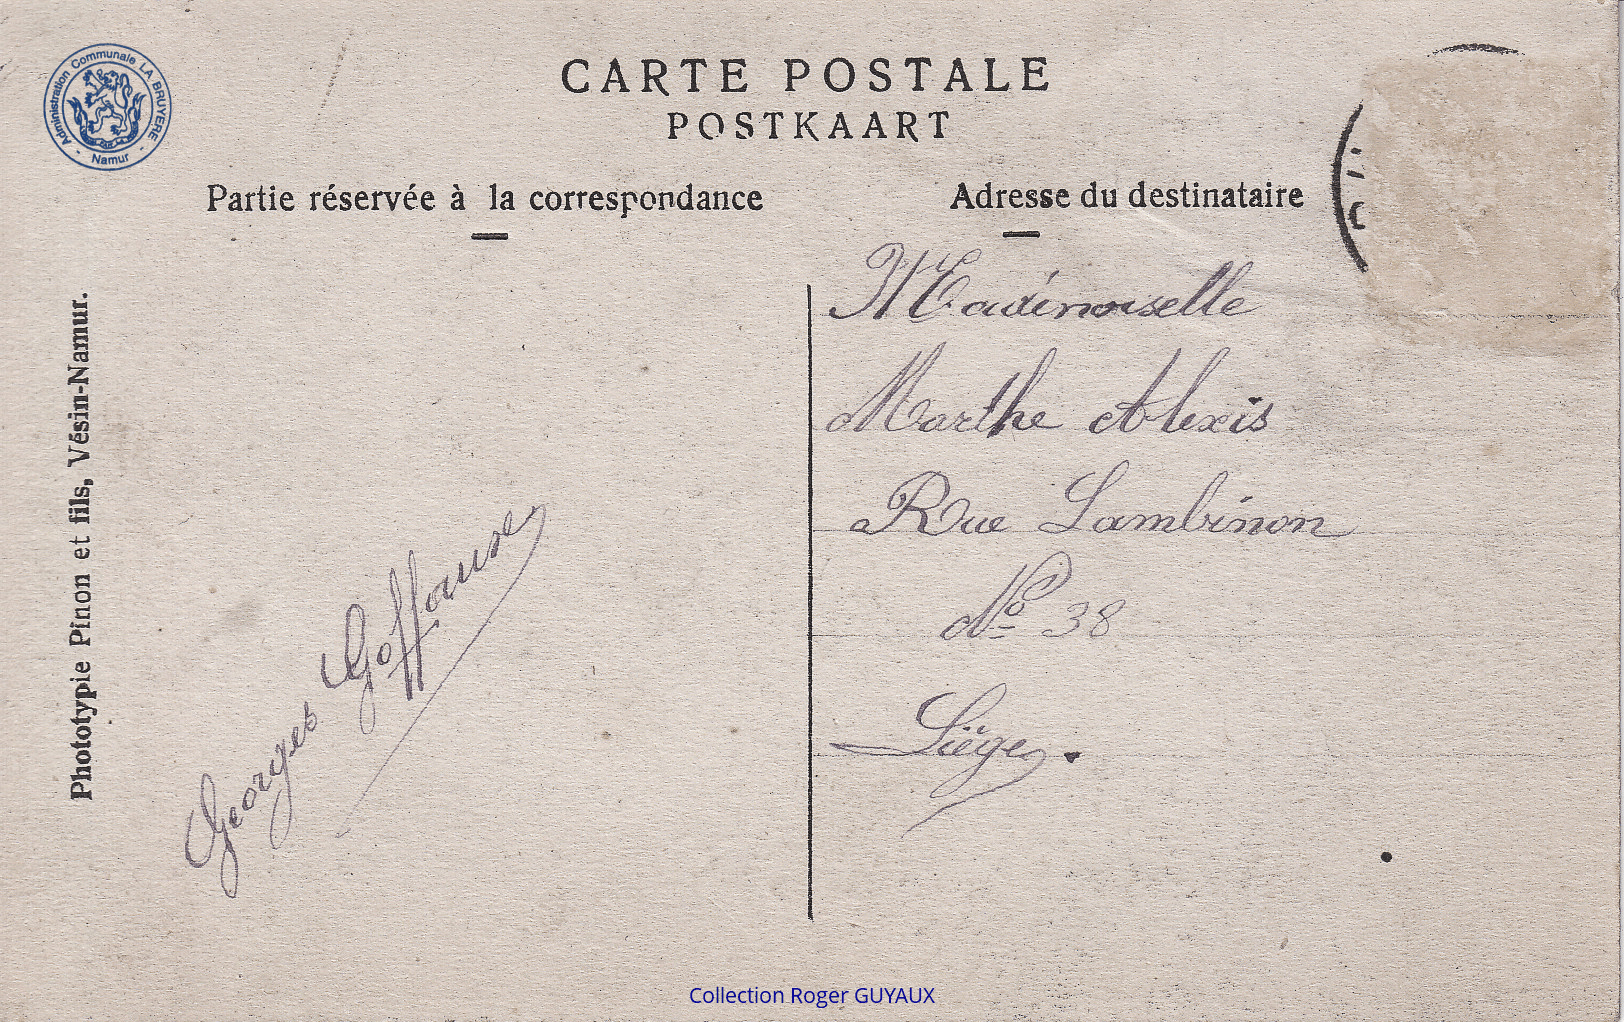 Administration Communale LA BRUYERE
- Namur -
CARTE POSTALE
POSTKAART
Partie réservée à la correspondance
Adresse du destinataire
Phototypie Pinon et fils, Vésin-Namur.
Georges Goffaux
Mademoiselle
Marthe Alexis
Rue Lambinon
Nº 38
Liége.
Collection Roger GUYAUX